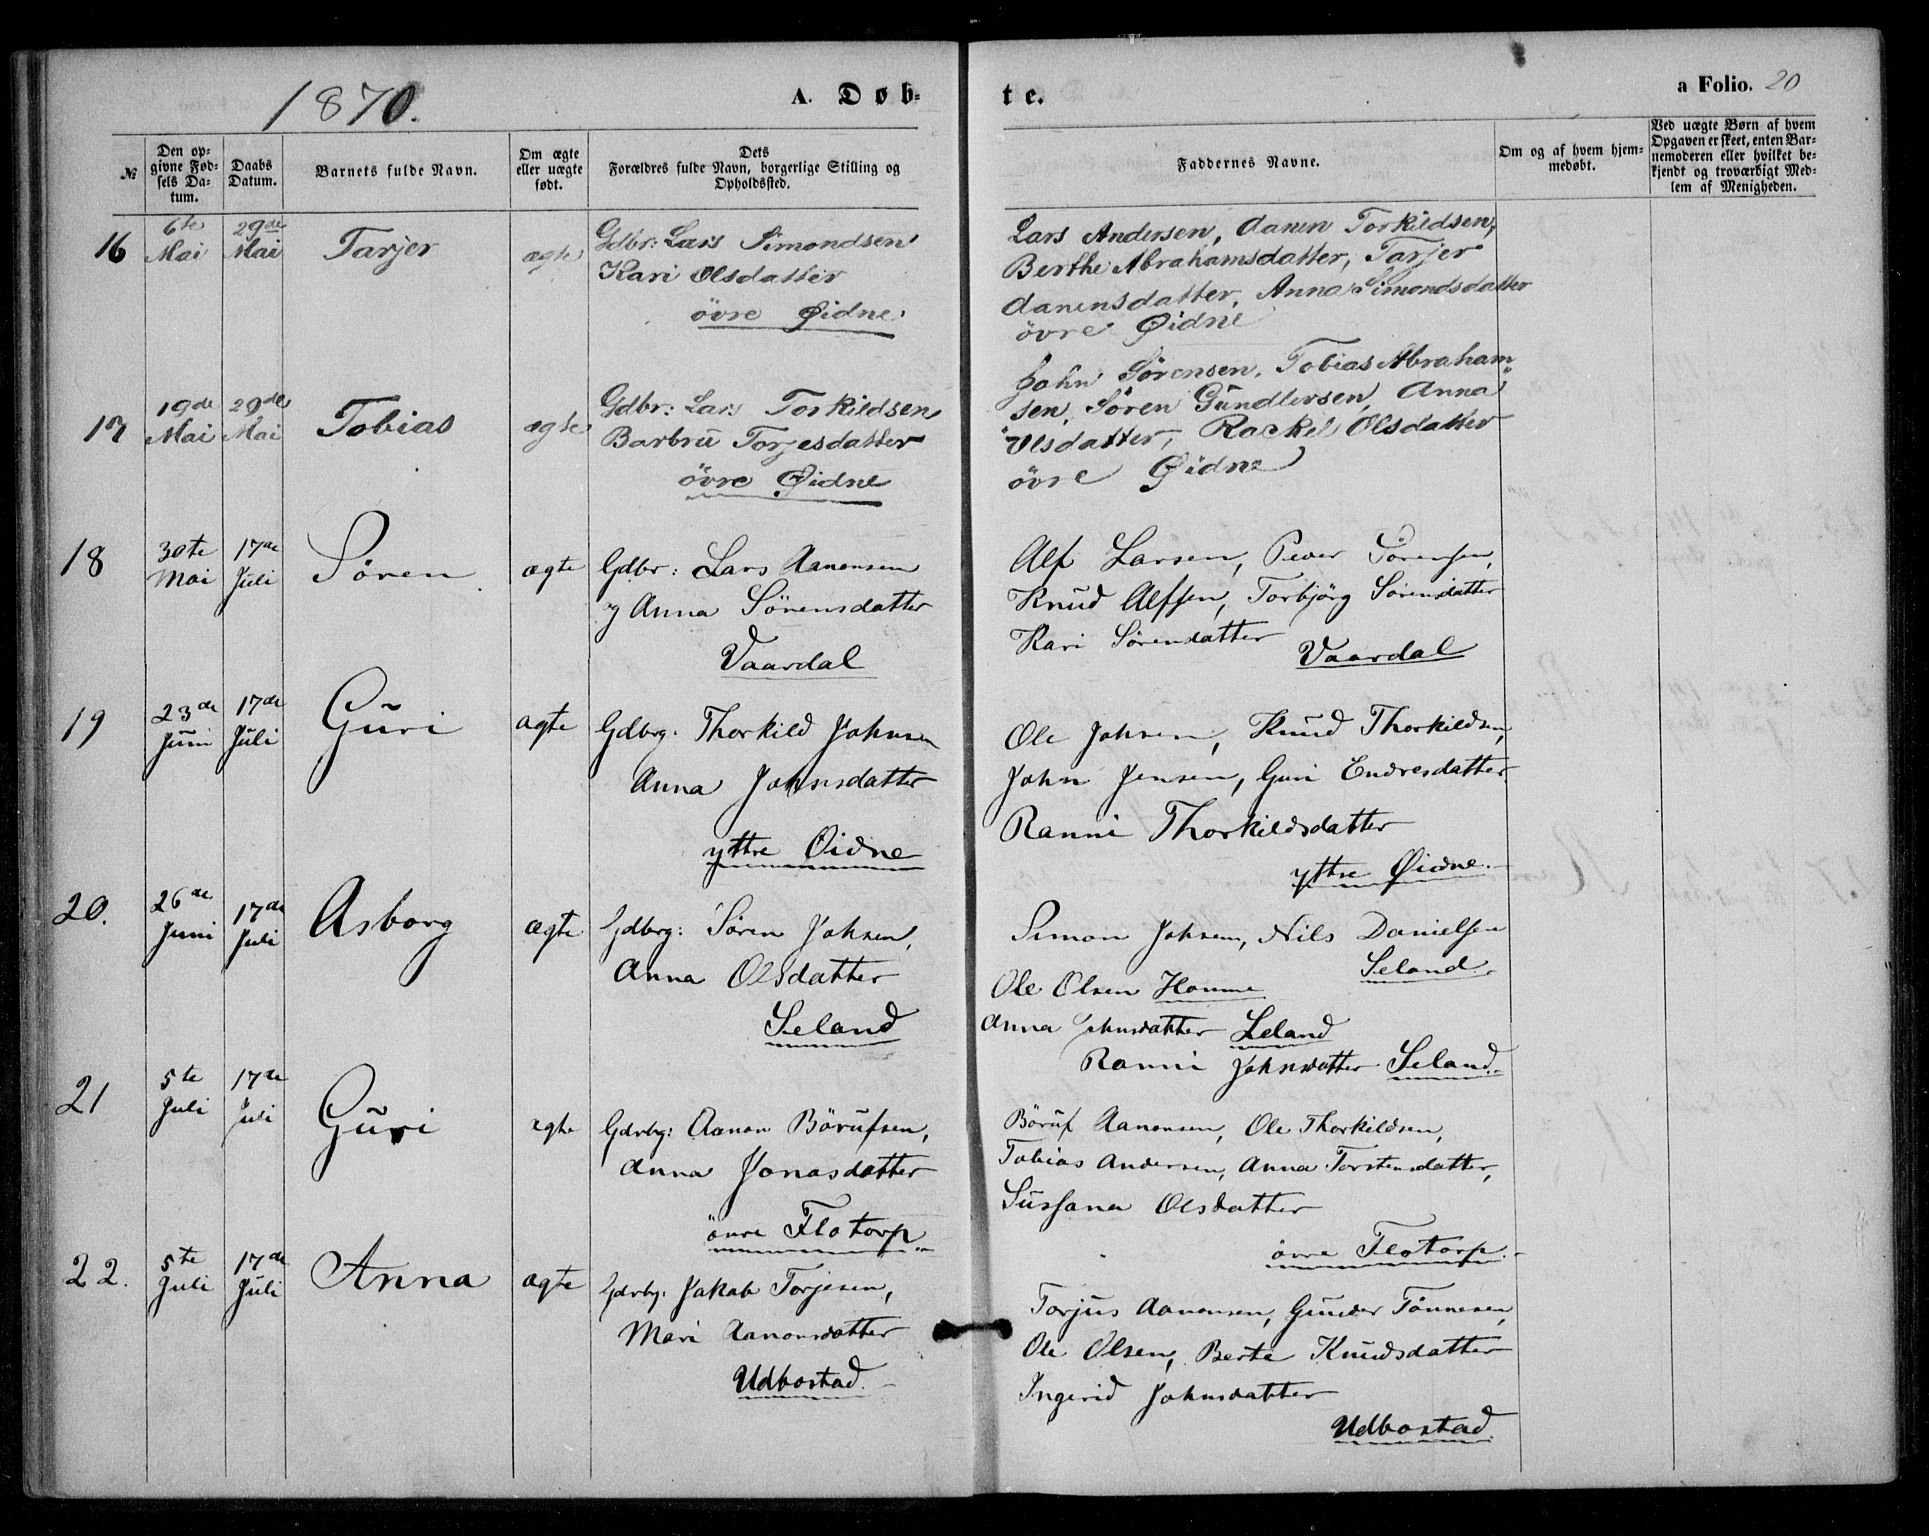 1870.
A. Døb-
te.
a Folio. 20
№
Den op-
givne Fød-
sels Da-
tum.
Daabs
Datum.
Barnets fulde Navn.
Om ægte
eller uægte
født.
Dets
Forældres fulde Navn, borgerlige Stilling og
Opholdssted.
Faddernes Navne.
Om og af hvem hjem-
medøbt.
Ved uægte Børn af hvem
Opgaven er skeet, enten Bar-
nemoderen eller hvilket be-
kjendt og troværdigt Med-
lem af Menigheden.
16
6te
Mai
29de
Mai
Tarjer
ægte
Gdbr: Lars Simondsen
Kari Olsdatter
övre Øidne.
Lars Andersen, Aanen Torkildsen,
Berthe Abrahamsdatter, Tarjer
Aanensdatter, Anna Simondsdatter
övre Øidne
17
19de
Mai
29de
Mai
Tobias
ægte
Gdbr: Lars Torkildsen
Barbru Torjesdatter
övre Øidne
John Sörensen, Tobias Abraham-
sen, Sören Gundlersen, Anna
Olsdatter, Rackel Olsdatter
övre Øidne
18
30te
Mai
17de
Juli
Sören
ægte
Gdbr: Lars Aanensen
og Anna Sörensdatter
Vaardal
Alf Larsen, Peder Sörensen,
Knud Alfsen, Torbjörg Sörensdatter
Kari Sörensdatter
Vaardal
19
23de
Juni
17de
Juli
Guri
ægte
Gdbrg. Thorkild Johnsen
Anna Johnsdatter
yttre Øidne
Ole Johsen, Knud Thorkildsen,
John Jensen, Guri Endresdatter
Ranni Thorkildsdatter
yttre Øidne.
20.
26de
Juni
17de
Juli
Asborg
ægte
Gdbrg: Sören Johsen,
Anna Olsdatter
Seland
Simon Johsen, Nils Danielsen
Seland.
Ole Olsen Homme
Anna Johnsdatter Seland
Ranni Johnsdatter Seland.
21
5te
Juli
17de
Juli
Guri
ægte
Gdrbg: Aanon Börufsen,
Anna Jonasdatter
övre Flotorp
Böruf Aanonsen, Ole Thorkildsen,
Tobias Andersen, Anna Torstensdatter,
Sussana Olsdatter
övre Flotorp.
22.
5te
Juli
17de
Juli
Anna
ægte
Gdrbg. Jakob Torjesen,
Mari Aanonsdatter
Udbostad.
Torjus Aanonsen, Gunder Tönnesen,
Ole Olsen, Berte Knudsdatter
Ingerid Johnsdatter
Udbostad.